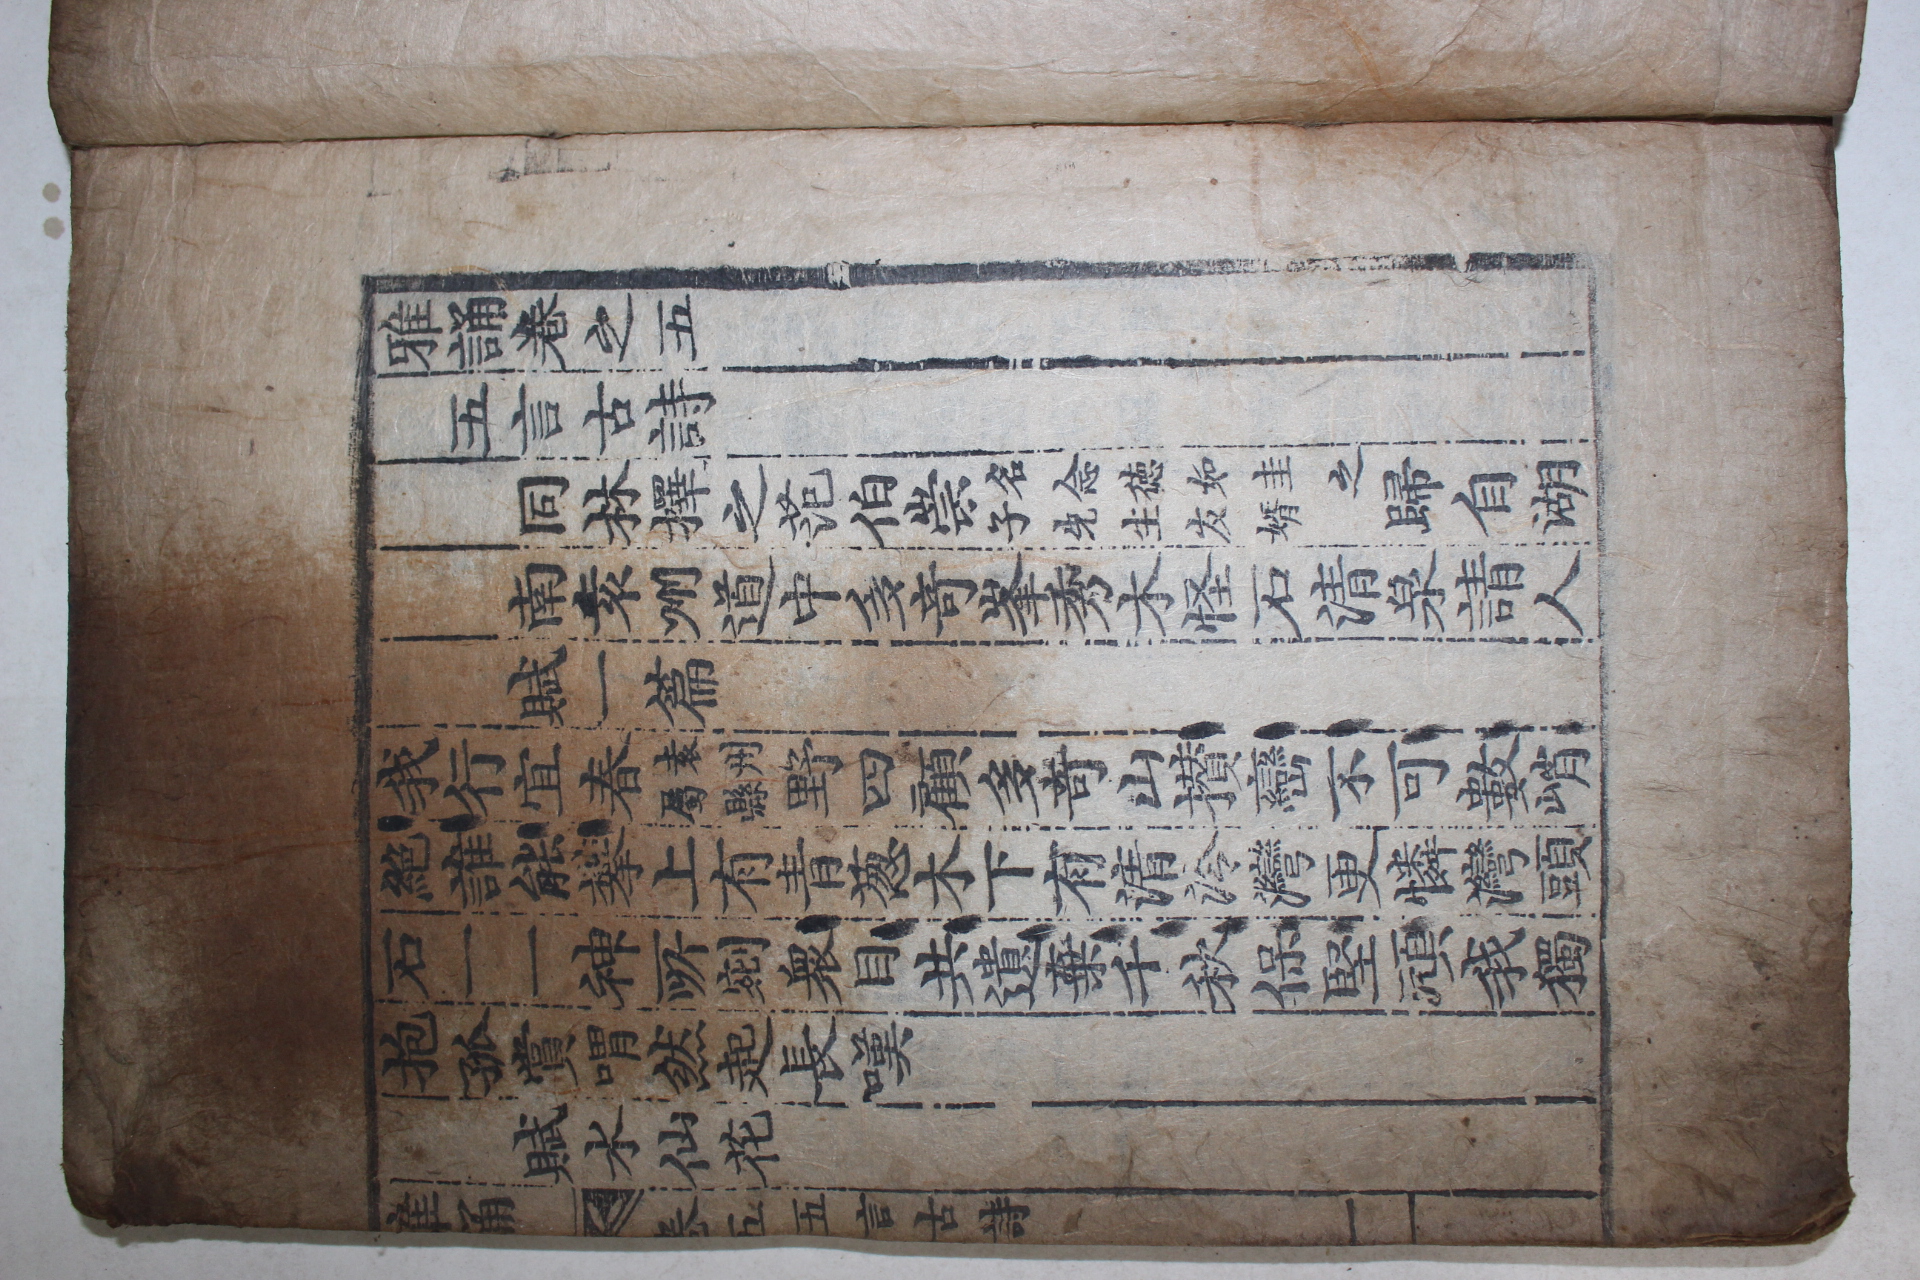 雅誦卷之五
五言古詩
同林擇之范伯崇名念德如圭之子先生友婿歸自湖
南袁州道中多奇峯秀木怪石清泉請人
賦一篇
我行宜春袁州屬縣野四顧多奇山攢巒不可數峭
絕誰能攀上有青葱木下有清泠灣更憐灣頭
石一一神所剜衆目共遺棄千秋保堅頑我獨
抱孤賞喟然起長嘆
賦水仙花
雅誦 卷五 五言古詩 一